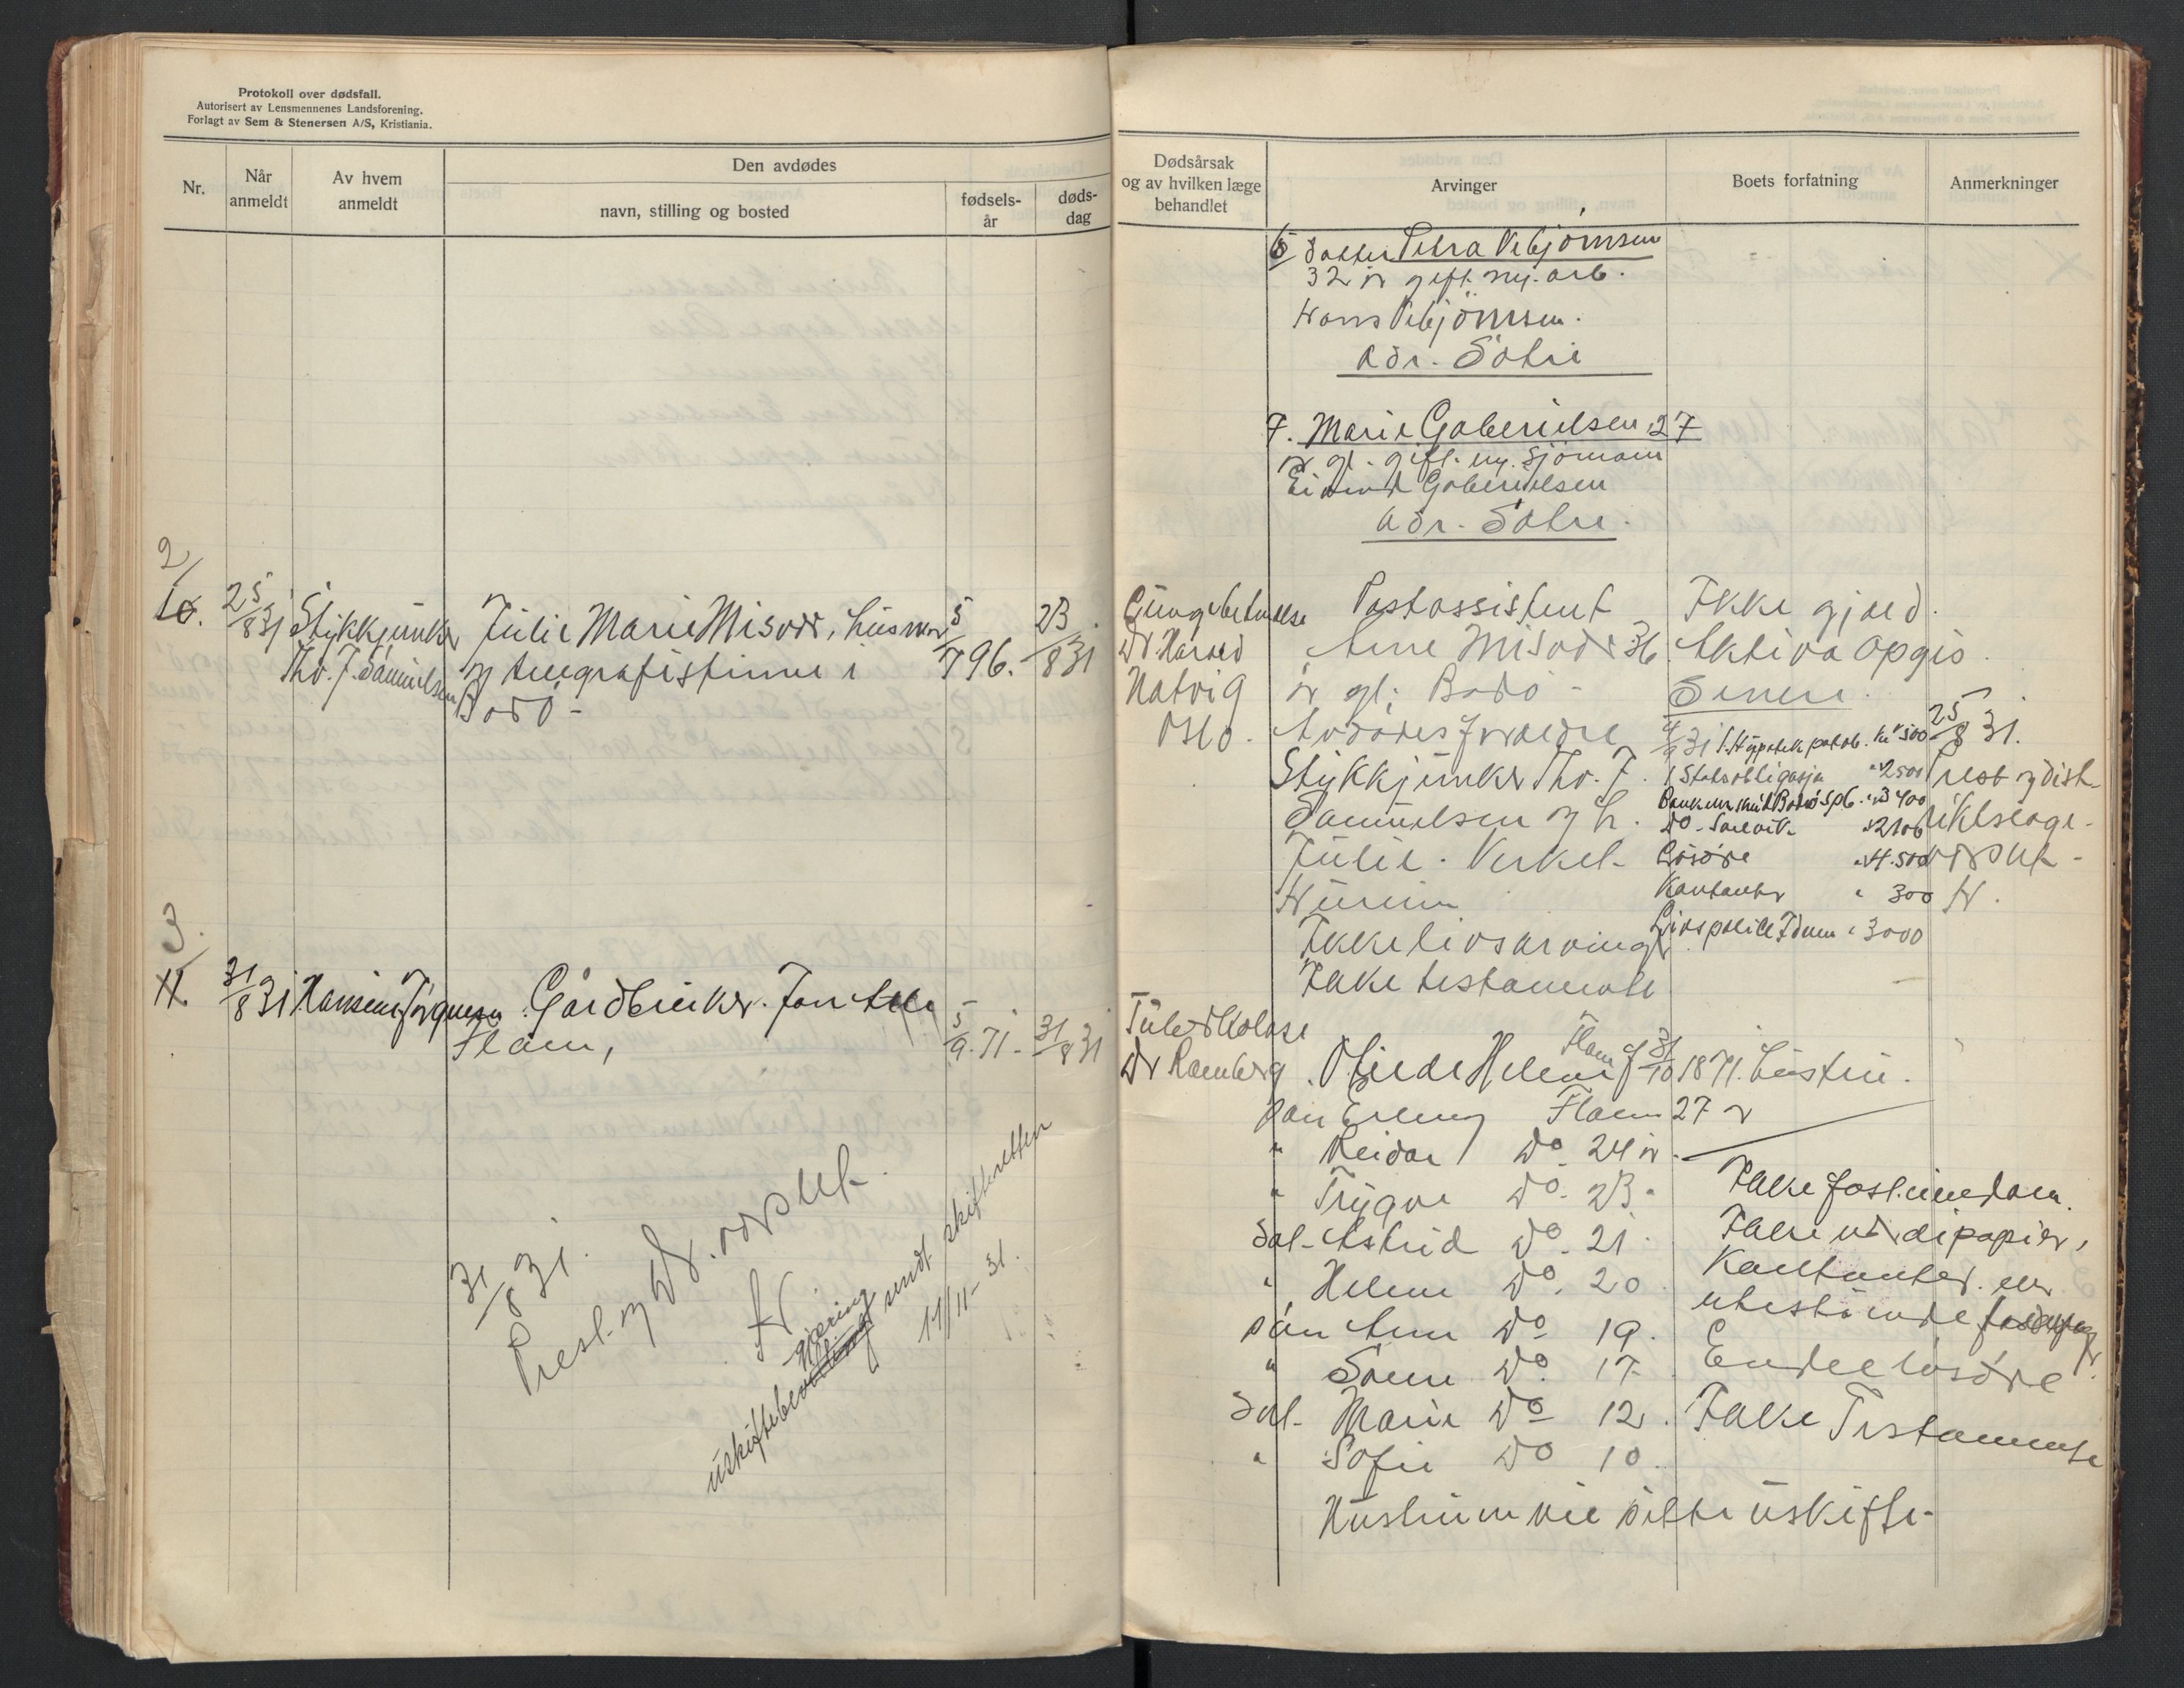 Protokoll over dødsfall.
Autorisert av Lensmennenes Landsforening.
Forlagt av Sem & Stenersen A/S, Kristiania.
Nr.
Når anmeldt
Av hvem anmeldt
Den avdødes
navn, stilling og bosted
fødsels-år
døds-dag
2/
10.
25/8 31
Stykkjunker
Thv. J. Samuelsen
Julie Marie Misvær, husmor
og telegrafistinne i
Bodø -
5/7 96.
23/8 31
3.
11.
31/8 31
Hansine Jørgensen
Gårdbruker Jon
Flåm,
5/9. 71 -
31/8 31
31/8 31.
Prest og Ds. vdr. Uk.
H.
gjæring
uskiftebevilling sendt skifteretten
11/11 - 31.
Dødsårsak
og av hvilken læge
behandlet
Arvinger
Boets forfatning
Anmerkninger
6/ datter Petra Vebjørnsen
32 år gift m. arb.
Hans Vebjørnsen.
adr. Sætre
7. Marie Gabrielsen 27
år gl. gift m. sjømann
Gabrielsen
adr. Sætre.
Lungebetendelse
Dr. Harald
Natvig
Oslo.
Postassistent
Arne Misvær 36
år gl. Bodø -
Avdødes foreldre
Stykkjunker Thv. J.
Samuelsen og h.
Julie.
Ikke livsarvinger
Ikke testamente
Ikke gjæld.
Aktiva opgis
senere.
1 Hypotek patob. kr 500
1 Statsobligasjon " 2500
Bankinnskudd Bodø Spb. " 3400
Do - " 2106
Løsøre " 4.500
Kontanter " 300
Livspolice Idun " 3000
25/8 31.
Prest og dist-
riktslæge
H.
Tuberkulose
Dr Ramberg
Flåm
Helene f 31/10 1871. hustru.
Søn Erling Flåm 27 år
" Reidar Do 24 år
" Trygve Do. 23.
Dat. Astrid Do. 21.
" Helene Do. 20
Søn Arne Do 19.
" Do. 17
Dat. Marie Do 12.
" Sofie Do 10.
Ikke fast eiendom.
Ikke verdipapirer,
Kontanter eller
utestående fordringer.
Endel løsøre
Ikke Testamente
Hustruen vil sitte i uskifte.